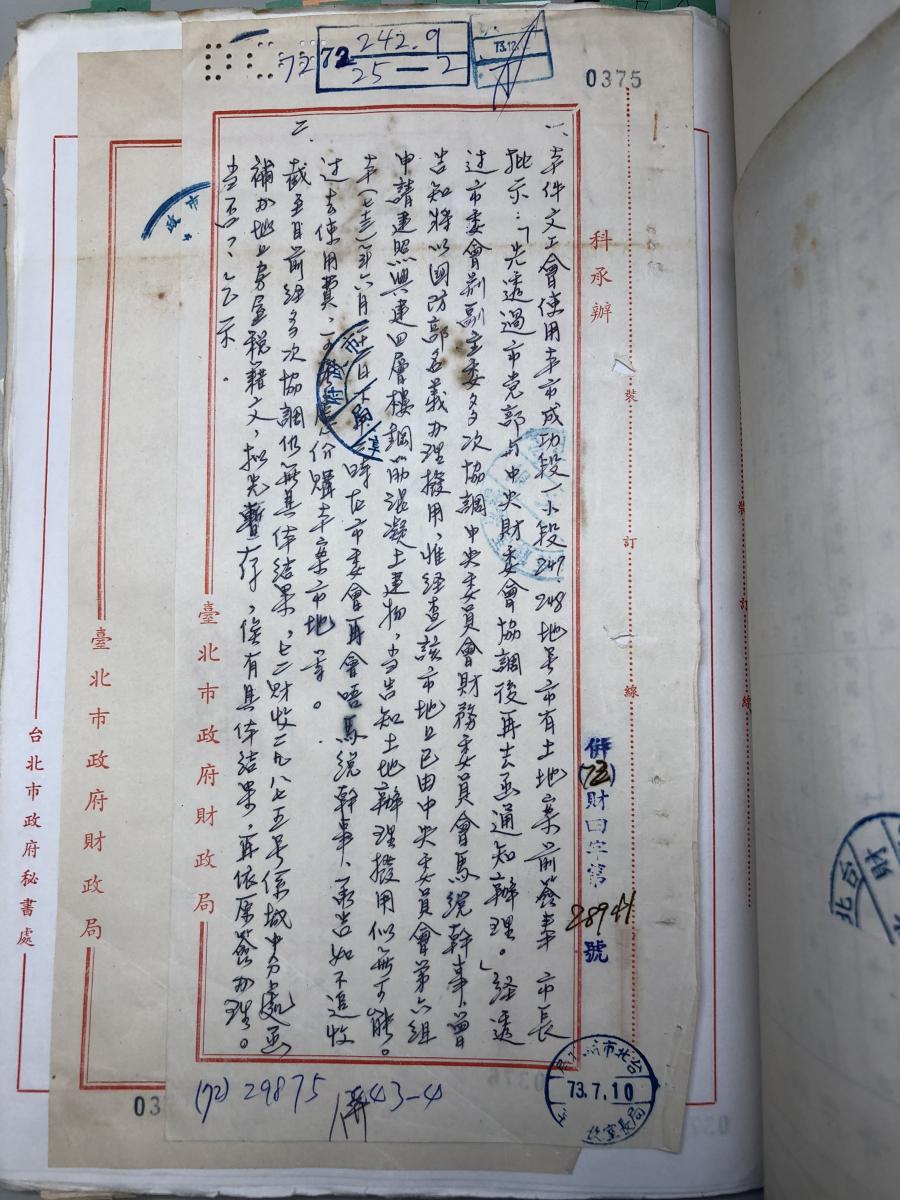 72 72 242.9
25-2
73.12.
0375
科承辦
裝
訂
線
併(73)財四字第28944號
一、本件文工會使用本市成功段一小段247 248地號市有土地案前簽奉 市長
批示:「先透過市党部与中央財委會協調後再去函通知辦理。」經透
過市委會荊副主委多次協調中央委員會財務委員會馬總幹事,曾
告知將以國防部名義办理撥用,惟經查該市地上已由中央委員會第六組
申請建照興建四層樓鋼筋混凝土建物,当告知土地辦理撥用似無可能。
本(七三)年六月 日下午 時在市委會再會晤馬總幹事,面告如不追收
過去使用費,可 價購本案市地等。
二、截至目前經多次協調仍無具体結果,七二財收二九八七五号係城中分處函
補办地上房屋稅籍文,拟先暫存,俟有具体結果,再依原簽办理。
当否,乞示。
臺北市政府財政局
臺北市政府財政局
台北市政府秘書處
裝
訂
線
(72) 29875
併 43-4
73.7.10
局長室
03
北台
財